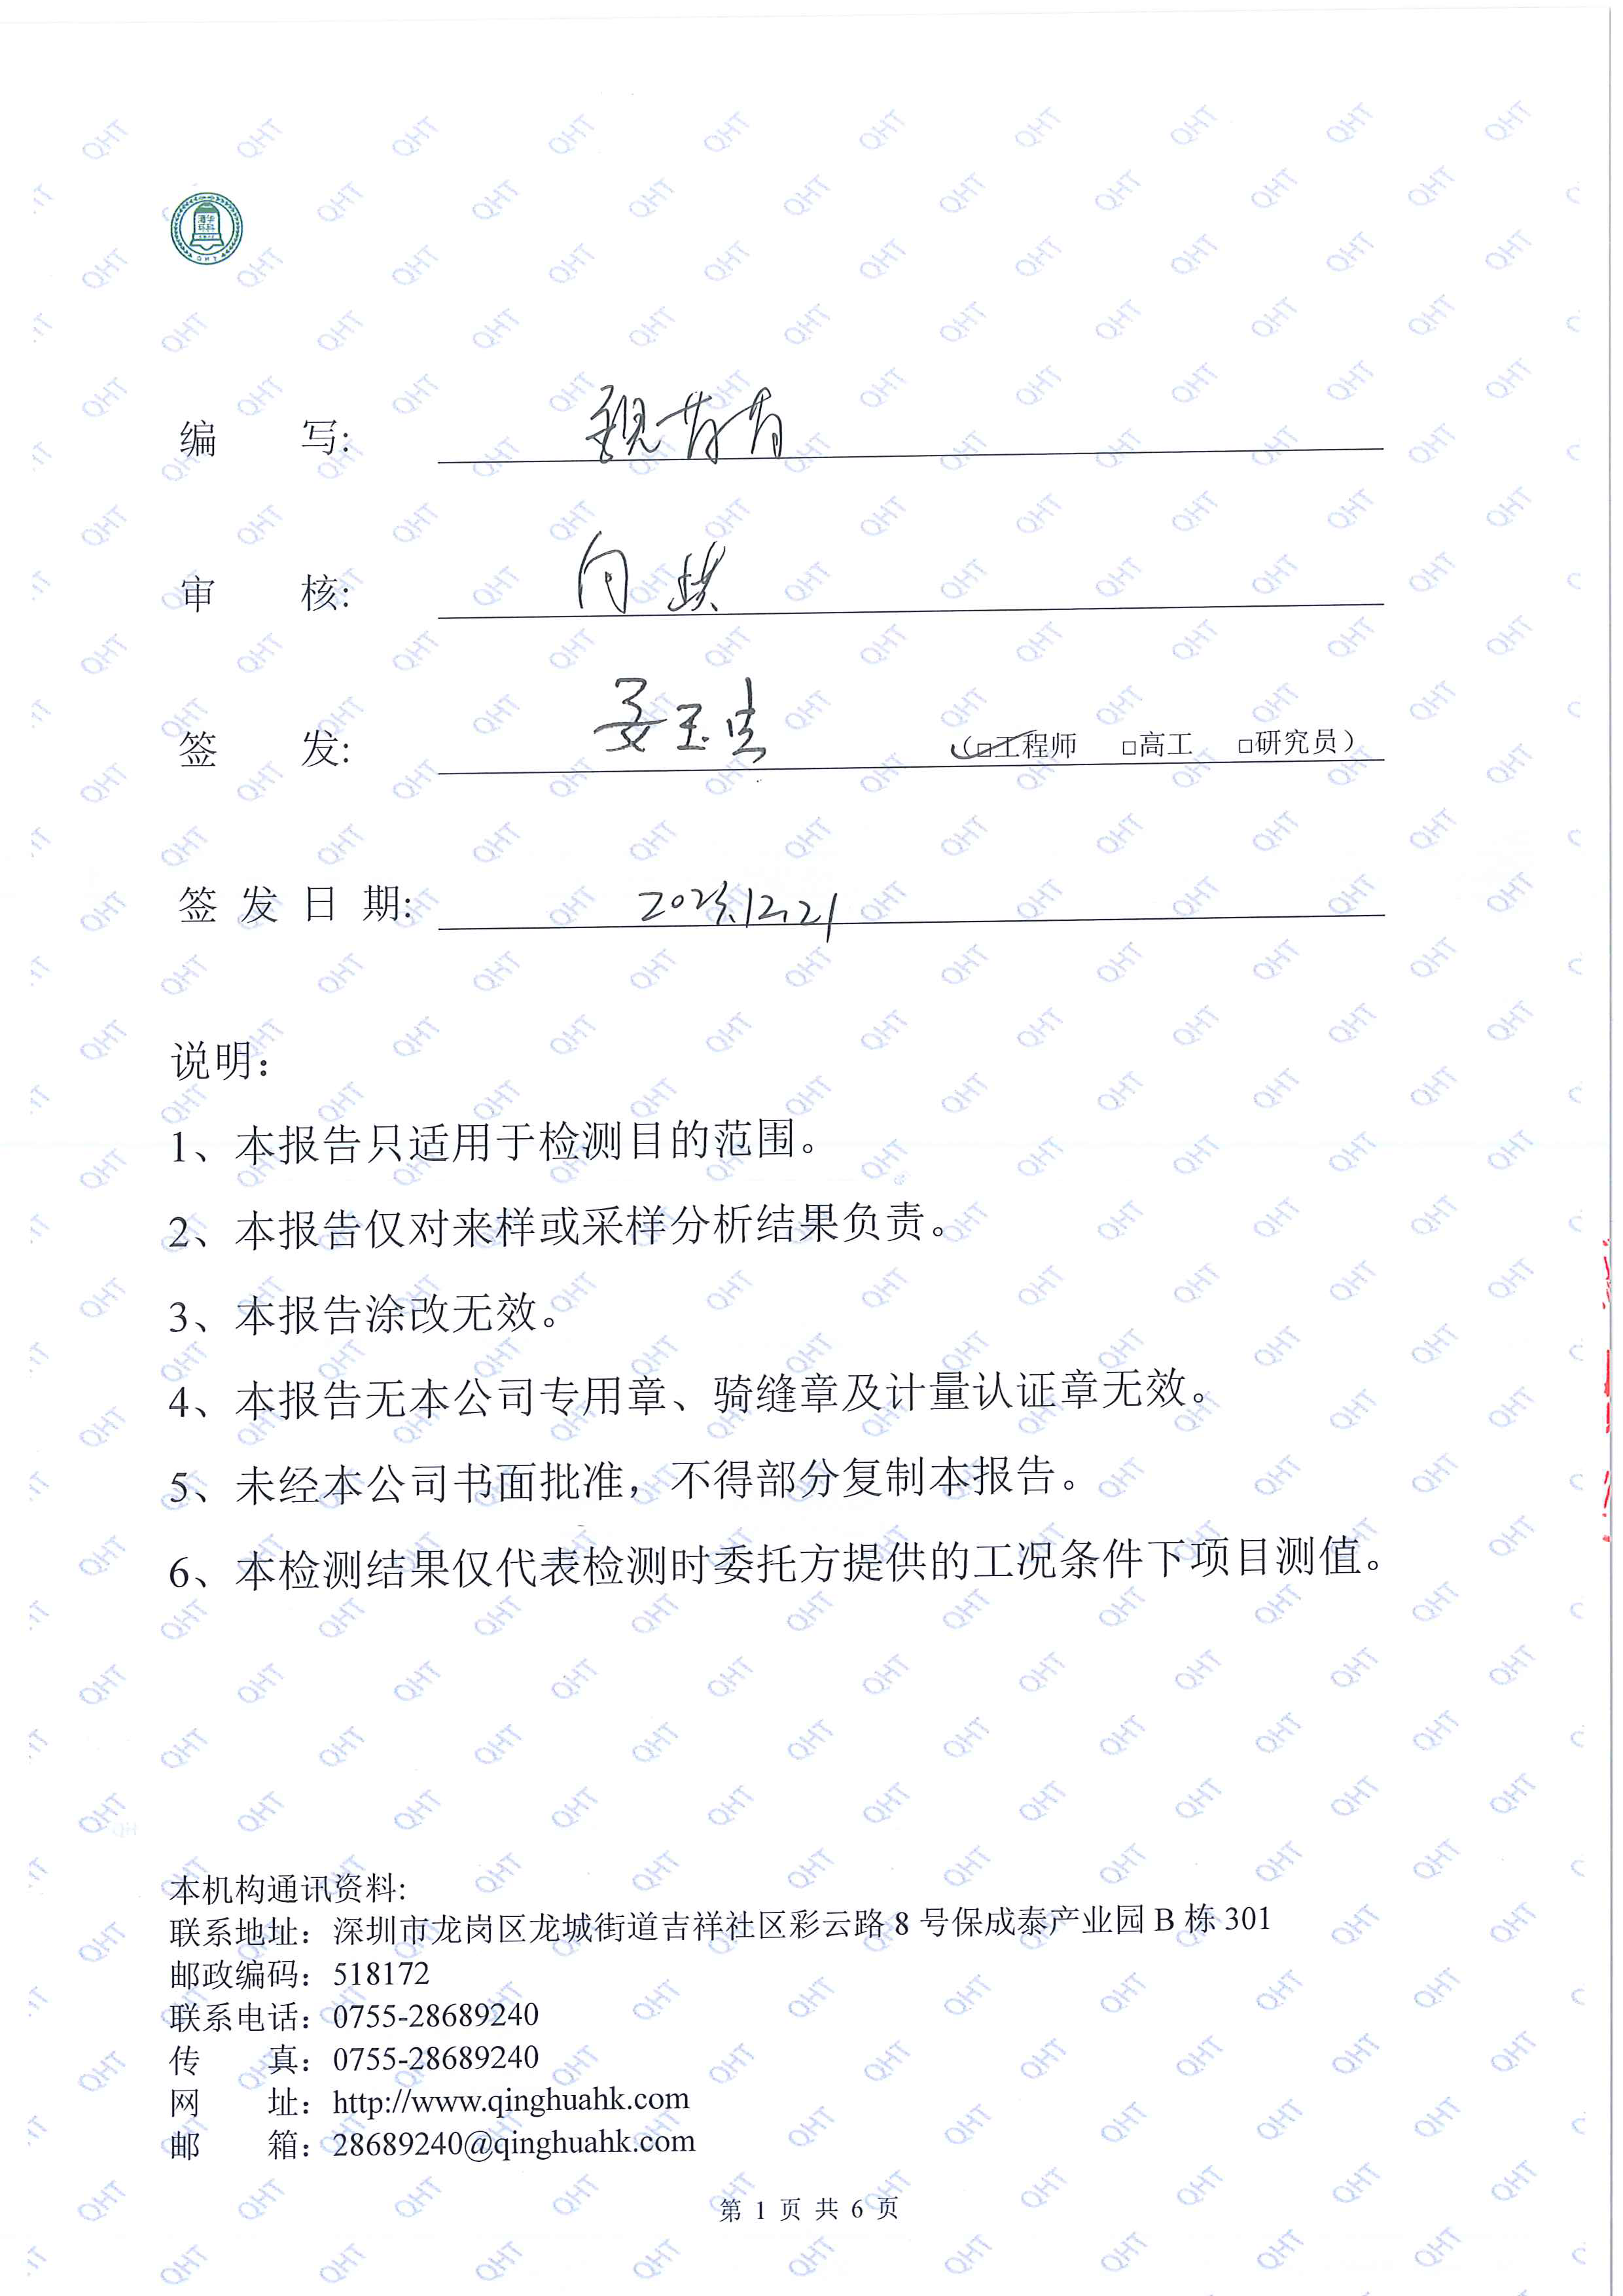 编 写: 魏
审 核: 向
签 发: 姜玉 (□工程师 □高工 □研究员)
签 发 日 期: 12.21
说明:
1、本报告只适用于检测目的范围。
2、本报告仅对来样或采样分析结果负责。
3、本报告涂改无效。
4、本报告无本公司专用章、骑缝章及计量认证章无效。
5、未经本公司书面批准,不得部分复制本报告。
6、本检测结果仅代表检测时委托方提供的工况条件下项目测值。
本机构通讯资料:
联系地址: 深圳市龙岗区龙城街道吉祥社区彩云路 8 号保成泰产业园 B 栋 301
邮政编码: 518172
联系电话: 0755-28689240
传 真: 0755-28689240
网 址: http://www.qinghuahk.com
邮 箱: 28689240@qinghuahk.com
第 1 页 共 6 页